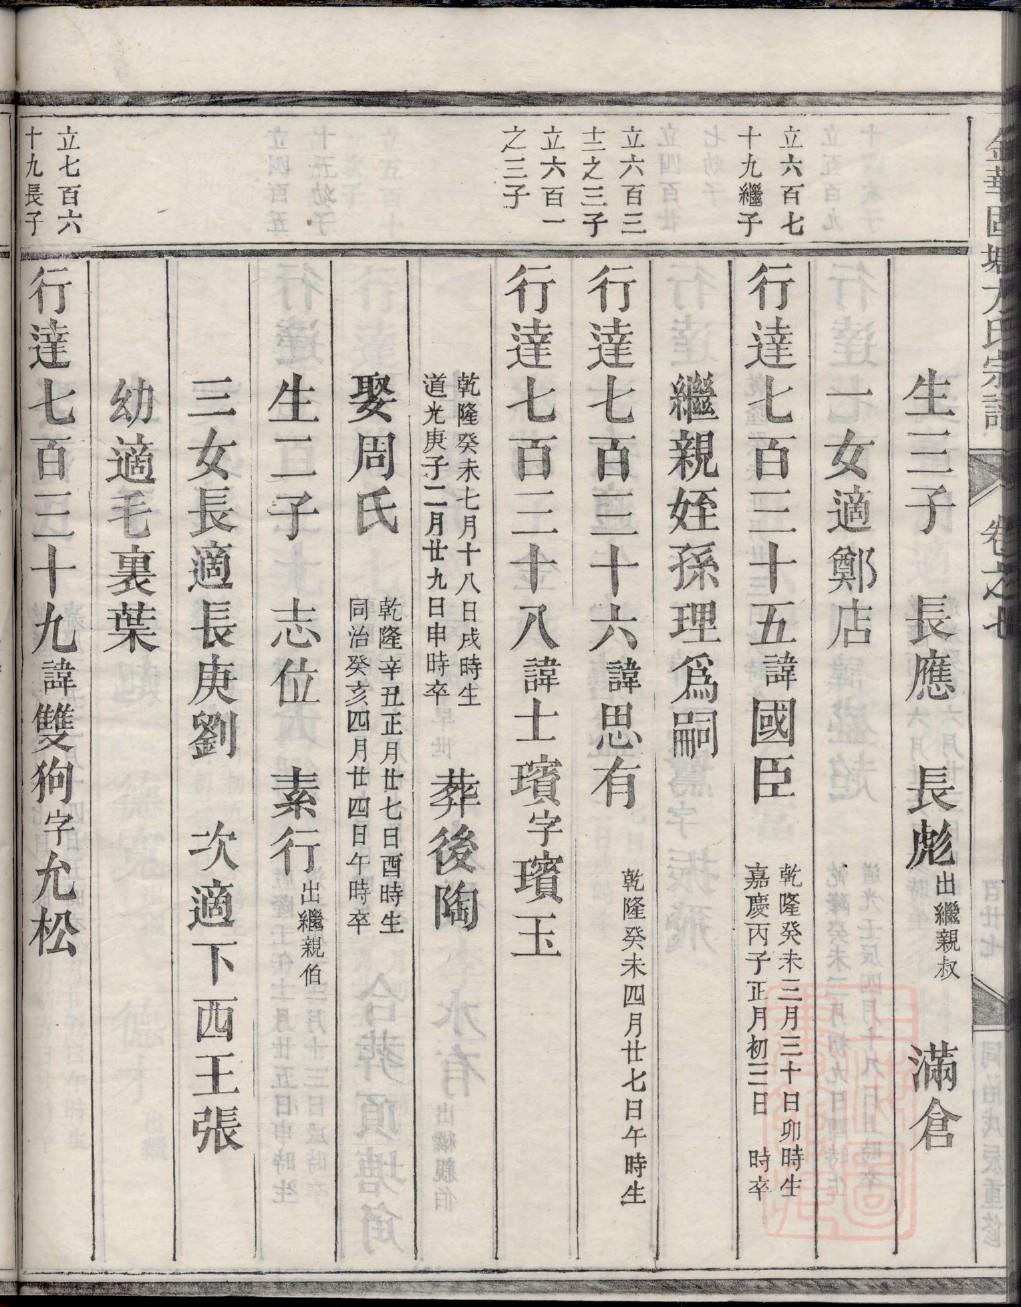 金華固塘方氏宗譜 卷之七 百廿七 同治戊辰重修
生三子 長應 長彪出繼親叔 滿倉
一女適鄭店
立六百七十九繼子
行達七百三十五諱國臣 乾隆癸未三月三十日卯時生 嘉慶丙子正月初三日 時卒
繼親姪孫理爲嗣
立六百三十二之三子
行達七百三十六諱思有 乾隆癸未四月廿七日午時生
立六百一之三子
行達七百三十八諱士璸字璸玉
乾隆癸未七月十八日戌時生 道光庚子二月廿九日申時卒 葬後陶
娶周氏 乾隆辛丑正月廿七日酉時生 同治癸亥四月廿四日午時卒
生二子 志位 素行出繼親伯
三女長適長庚劉 次適下西王張
幼適毛裏葉
立七百六十九長子
行達七百三十九諱雙狗字允松